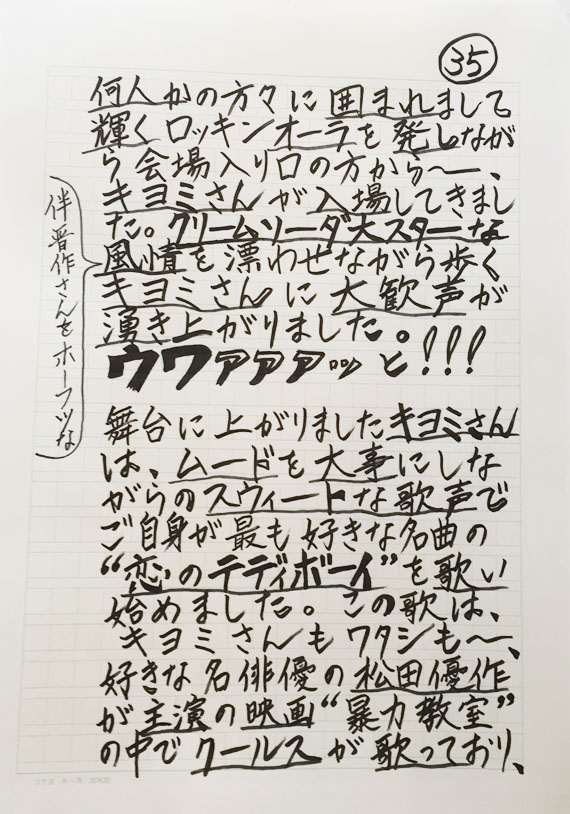 35
何人かの方々に囲まれまして
輝くロッキンオーラを発しなが
ら会場入り口の方から〜、
キヨミさんが入場してきまし
た。クリームソーダ大スターな
風情を漂わせながら歩く
キヨミさんに大歓声が
湧き上がりました。
ウワァァァッと!!!
伴晋作さんをホーフツな
舞台に上がりましたキヨミさん
は、ムードを大事にしな
がらのスウィートな歌声で
ご自身が最も好きな名曲の
“恋のテディボーイ”を歌い
始めました。この歌は、
キヨミさんもワタシも〜、
好きな名俳優の松田優作
が主演の映画“暴力教室”
の中でクールスが歌っており、